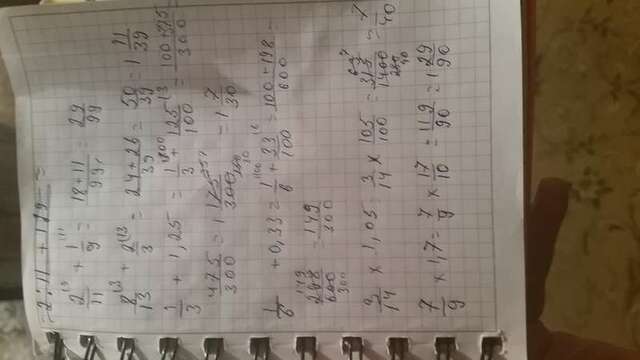 2:11 + 1:99 =
2/11 + 1/9 = 18+11/99 = 29/99
8/13 + 2/3 = 24+26/39 = 50/39 = 1 11/39
1/3 + 1,25 = 1/3 + 125/100 = 100+375/300
475/300 = 1 175/300 = 1 7/30
1/6 + 0,33 = 1/6 + 33/100 = 100+198/600 =
298/600 = 149/300
3/14 × 1,05 = 3/14 × 105/100 = 315/1400 = 7/40
7/9 × 1,7 = 7/9 × 17/10 = 119/90 = 1 29/90